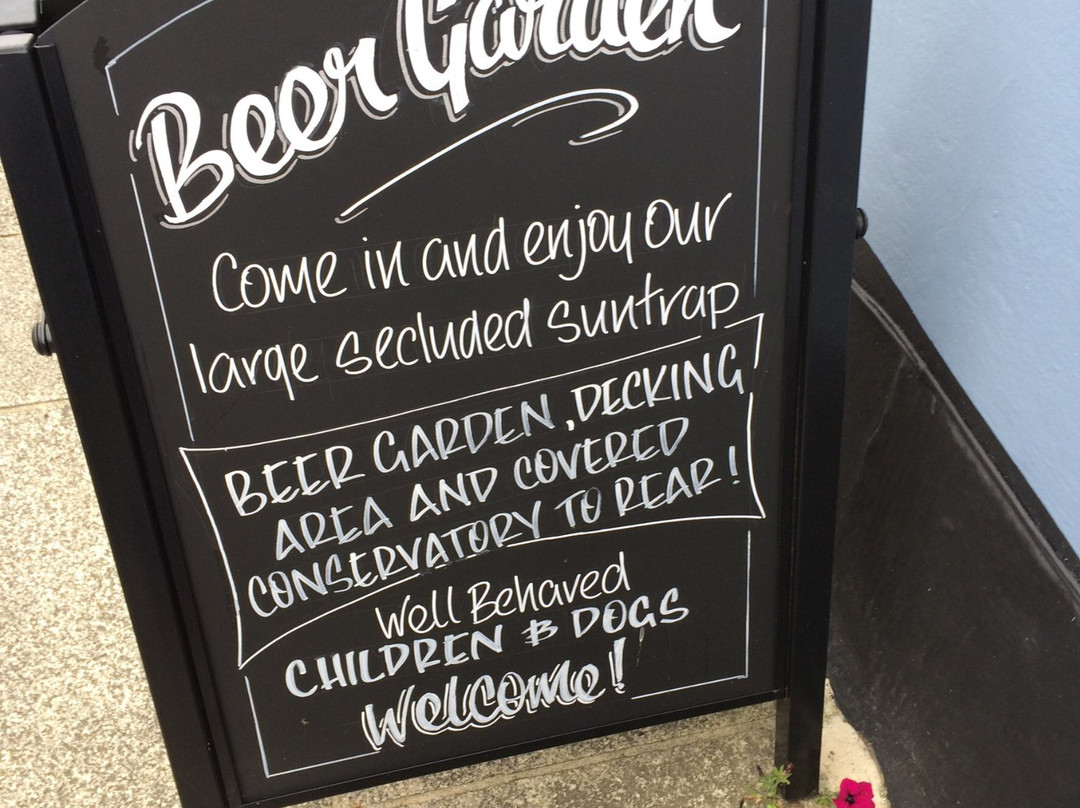 Beer Garden
Come in and enjoy our
large secluded suntrap
BEER GARDEN, DECKING
AREA AND COVERED
CONSERVATORY TO REAR!
Well Behaved
CHILDREN & DOGS
Welcome!